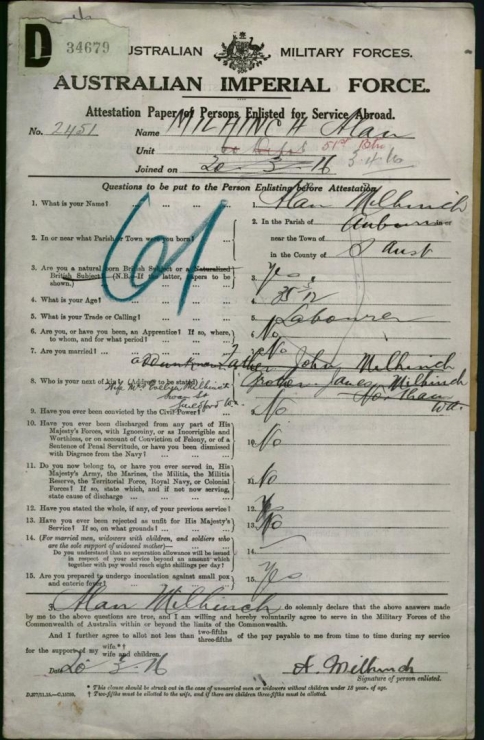 D 34679
AUSTRALIAN MILITARY FORCES.
AUSTRALIAN IMPERIAL FORCE.
Attestation Paper of Persons Enlisted for Service Abroad.
No. 2451 Name MILHINCH Alan
Unit 51st
Joined on 20 3 16
Questions to be put to the Person Enlisting before Attestation.
1. What is your Name? ... ... ... 1. Alan Milhinch
2. In or near what Parish or Town were you born? ... 2. In the Parish of Auburn in or
near the Town of
in the County of S Aust
3. Are you a natural born British Subject or a Naturalized
British Subject? (N.B.—If the latter, papers to be
shown.) 3. Yes
4. What is your Age? ... ... ... 4. 35
5. What is your Trade or Calling? ... ... 5. Labourer
6. Are you, or have you been, an Apprentice? If so, where,
to whom, and for what period? ... ... 6. No
7. Are you married? ... ... ... 7. No
Father John Milhinch
8. Who is your next of kin? (Address to be stated) Brother James Milhinch
Northam
WA.
Wife Mrs Evelyn Milhinch
Swan St
Guildford WA.
9. Have you ever been convicted by the Civil Power? ... 9. No
10. Have you ever been discharged from any part of His
Majesty's Forces, with Ignominy, or as Incorrigible and
Worthless, or on account of Conviction of Felony, or of a
Sentence of Penal Servitude, or have you been dismissed
with Disgrace from the Navy? ... ... 10. No
11. Do you now belong to, or have you ever served in, His
Majesty's Army, the Marines, the Militia, the Militia
Reserve, the Territorial Force, Royal Navy, or Colonial
Forces? If so, state which, and if not now serving,
state cause of discharge ... ... ... 11. No
12. Have you stated the whole, if any, of your previous service? 12.
13. Have you ever been rejected as unfit for His Majesty's
Service? If so, on what grounds? ... ... 13. No
14. (For married men, widowers with children, and soldiers who
are the sole support of widowed mother)—
Do you understand that no separation allowance will be issued
in respect of your service beyond an amount which
together with pay would reach eight shillings per day? 14.
15. Are you prepared to undergo inoculation against small pox
and enteric fever? ... ... ... 15. Yes
61
I, Alan Milhinch do solemnly declare that the above answers made
by me to the above questions are true, and I am willing and hereby voluntarily agree to serve in the Military Forces of the
Commonwealth of Australia within or beyond the limits of the Commonwealth.
And I further agree to allot not less than two-fifths three-fifths of the pay payable to me from time to time during my service
for the support of my wife.*† wife and children.
Date 20 3 16 A. Milhinch
Signature of person enlisted.
* This clause should be struck out in the case of unmarried men or widowers without children under 18 year. of age.
† Two-fifths must be allotted to the wife, and if there are children three-fifths must be allotted.